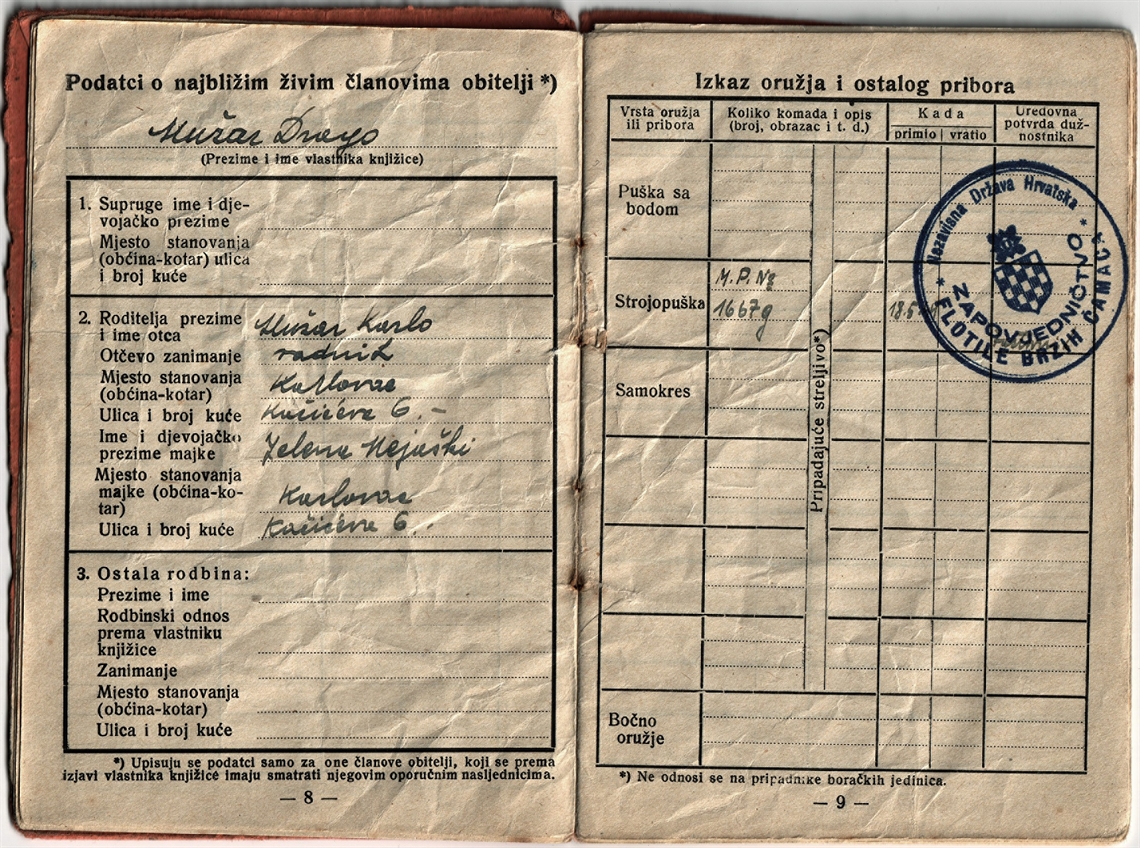 Podatci o najbližim živim članovima obitelji *)
Mužar Drago
(Prezime i ime vlastnika knjižice)
1. Supruge ime i dje-
vojačko prezime
Mjesto stanovanja
(obćina-kotar) ulica
i broj kuće
2. Roditelja prezime
i ime otca
Mužar Karlo
Otčevo zanimanje
radnik
Mjesto stanovanja
(obćina-kotar)
Karlovac
Ulica i broj kuće
Kačićeva 6.-
Ime i djevojačko
prezime majke
Jelena
Mjesto stanovanja
majke (obćina-ko-
tar)
Karlovac
Ulica i broj kuće
Kačićeva 6.
3. Ostala rodbina:
Prezime i ime
Rodbinski odnos
prema vlastniku
knjižice
Zanimanje
Mjesto stanovanja
(obćina-kotar)
Ulica i broj kuće
*) Upisuju se podatci samo za one članove obitelji, koji se prema
izjavi vlastnika knjižice imaju smatrati njegovim oporučnim nasljednicima.
— 8 —
Izkaz oružja i ostalog pribora
Vrsta oružja
ili pribora
Koliko komada i opis
(broj, obrazac i t. d.)
Kada
primio
vratio
Uredovna
potvrda duž-
nostnika
Puška sa
bodom
Strojopuška
M.P. №
1667g
Samokres
Pripadajuće streljivo*)
Bočno
oružje
Nezavisna Država Hrvatska
ZAPOVJEDNIČTVO
* FLOTILE BRZIH ČAMACA *
*) Ne odnosi se na pripadnike boračkih jedinica.
— 9 —